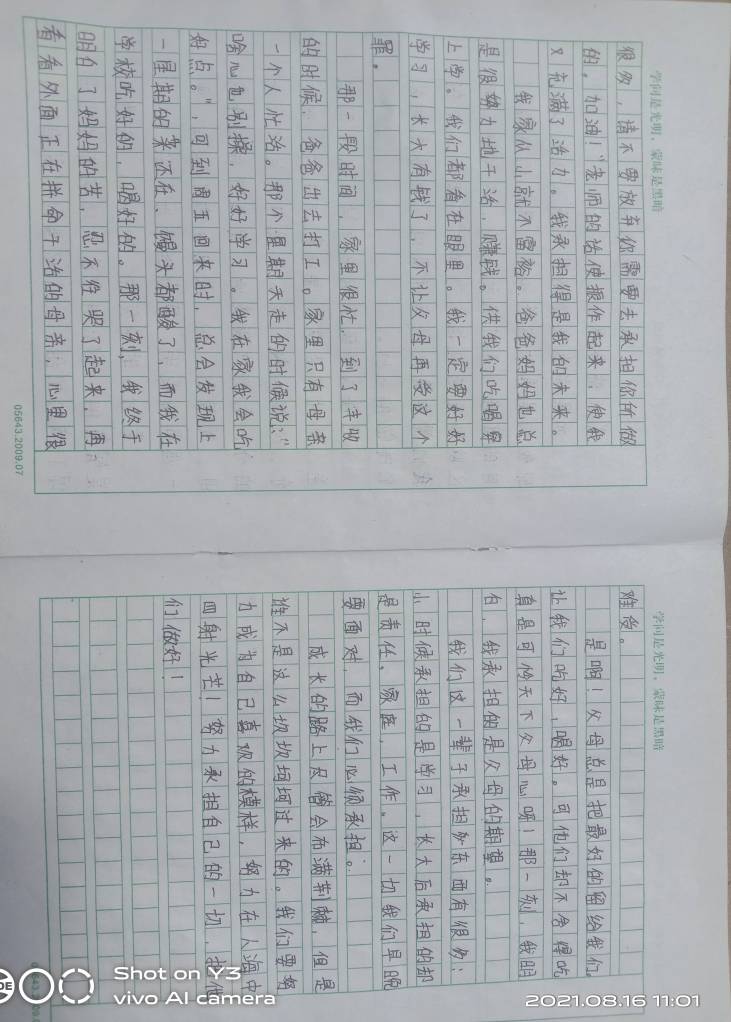 学问是光明，蒙昧是黑暗
很多，请不要放弃你需要去承担你所做
的。加油！"老师的话使振作起来，使我
又充满了活力。我承担得是我的未来。
我家从小就不富裕。爸爸妈妈也总
是很努力地干活，赚钱。供我们吃喝
上学。我们都看在眼里。我一定要好好
学习，长大有钱了，不让父母再受这个
罪。
那一段时间，家里很忙，到了丰收
的时候，爸爸出去打工。家里只有母亲
一个人忙活。那个星期天走的时候说："
啥心也别操，好好学习。我在家我会吃
好点。"，可到周五回来时，总会发现上
一星期的菜还在，馒头都酸了，而我在
学校吃好的，喝好的。那一刻，我终于
明白了妈妈的苦，忍不住哭了起来，再
看看外面正在拼命干活的母亲，心里很
05643.2009.07
学问是光明，蒙昧是黑暗
难受。
是啊！父母总是把最好的留给我们。
让我们吃好，喝好。可他们却不舍得吃
真是可怜天下父母心呀！那一刻，我明
白，我承担的是父母的期望。
我们这一辈子承担的东西有很多：
小时候承担的是学习，长大后承担的却
是责任，家庭，工作。这一切我们早晚
要面对，而我们必须承担。
成长的路上尽管会布满荆棘，但是
谁不是这么坎坎坷坷过来的。我们要努
力成为自己喜欢的模样，努力在人海中
四射光芒！努力承担自己的一切，把他
们做好！
Shot on Y3
vivo AI camera
2021.08.16 11:01